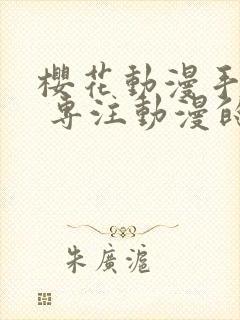 櫻花動漫手
專注動漫的
朱廣滬